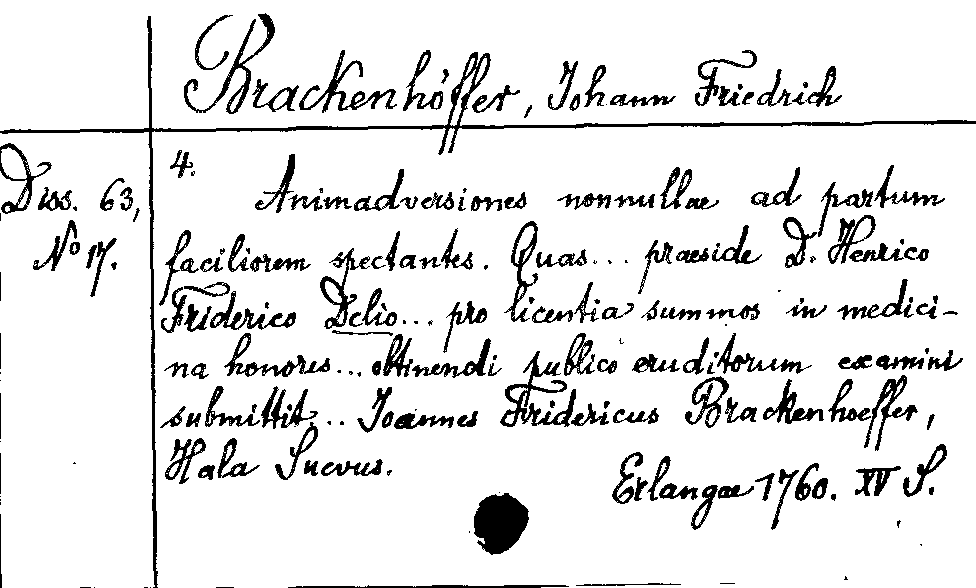 Brackenhöffer, Johann Friedrich
Diss. 63,
No 17.
4.
Animadversiones nonnullae ad partum
faciliorem spectantes. Quas... praeside D. Henrico
Friderico Delio... pro licentia summos in medici-
na honores... obtinendi publico eruditorum examini
submittit... Joannes Fridericus Brackenhoeffer,
Hala Suevus.
Erlangae 1760. XV S.